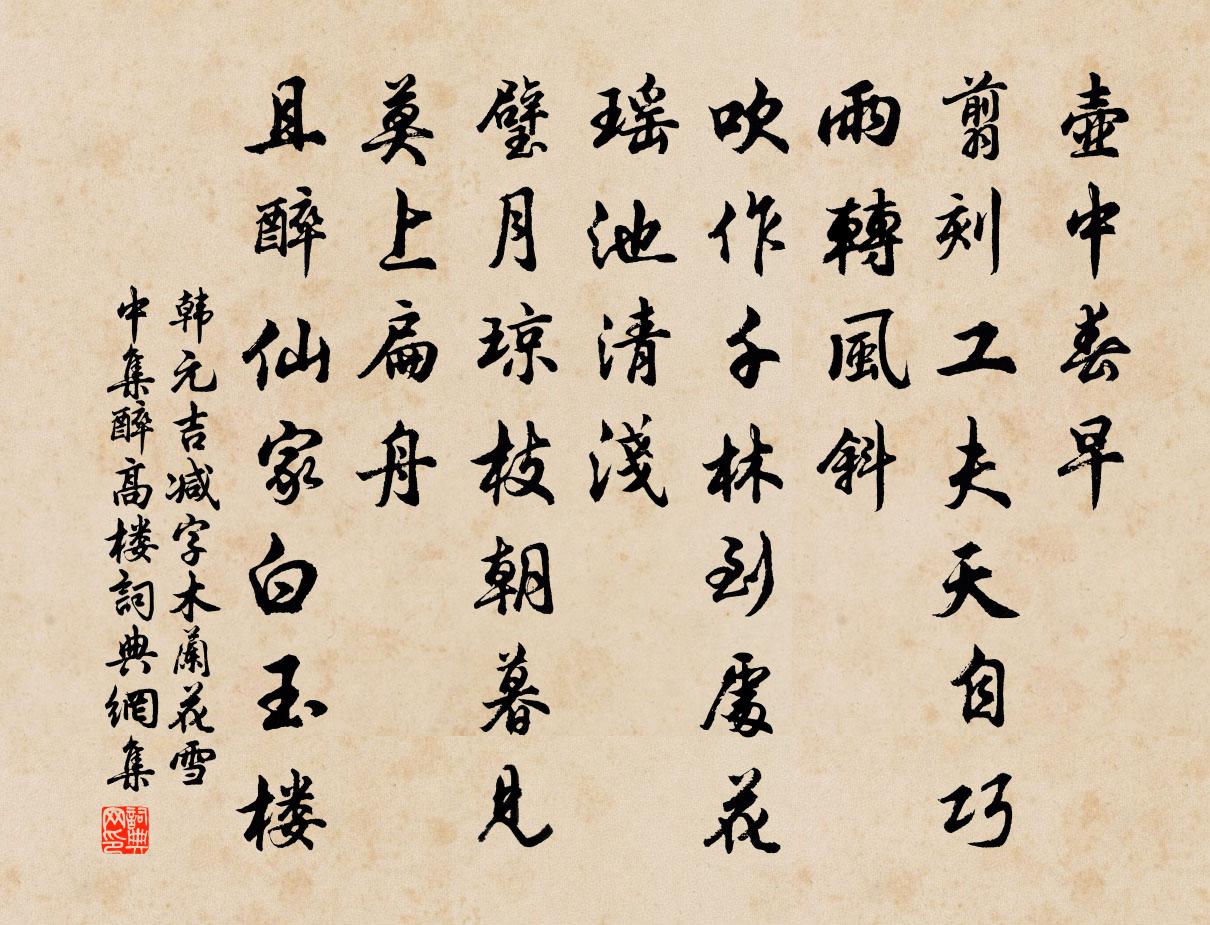 壺中春早
翦刻工夫天自巧
雨轉風斜
吹作千林到處花
瑶池清淺
璧月琼枝朝暮見
莫上扁舟
且醉仙家白玉楼
韩元吉减字木蘭花雪
中集醉高楼詞典網集
詞典
网印